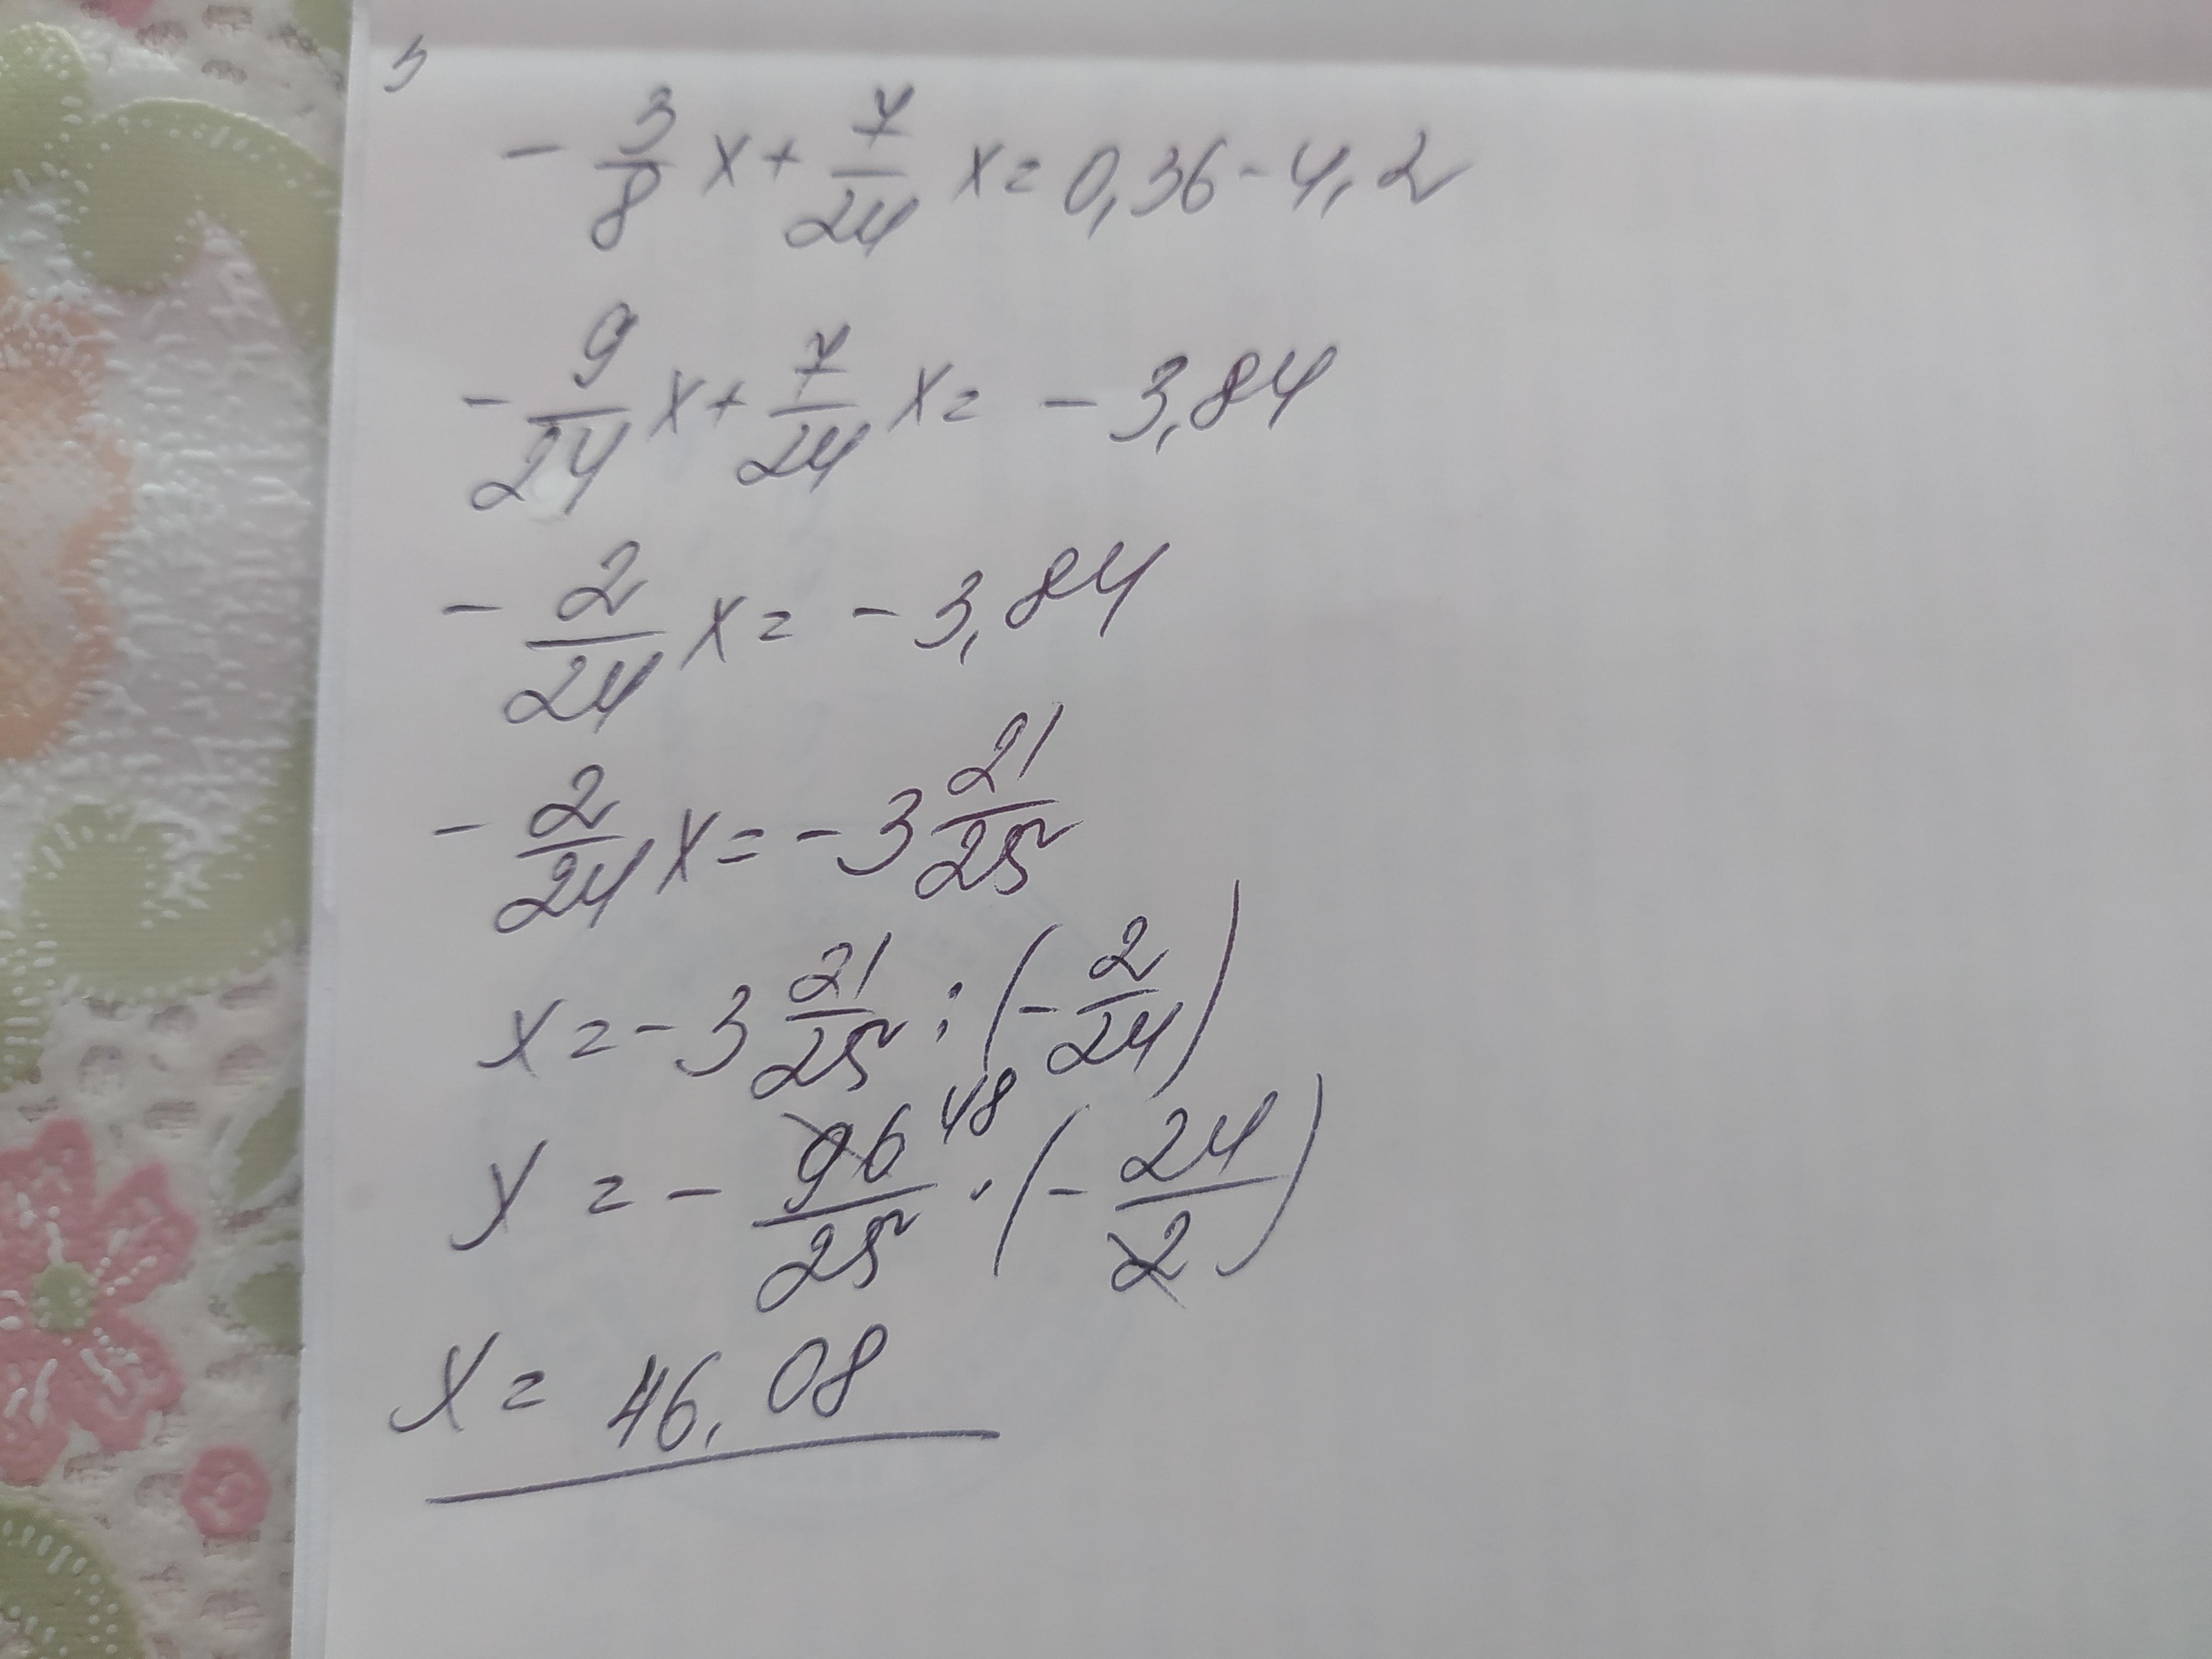 5
- 3/8 x + 7/24 x = 0,36 - 4,2
- 9/24 x + 7/24 x = - 3,84
- 2/24 x = - 3,84
- 2/24 x = - 3 21/25
x = - 3 21/25 : (- 2/24)
x = - 96/25 48 · (- 24/2)
x = 46,08